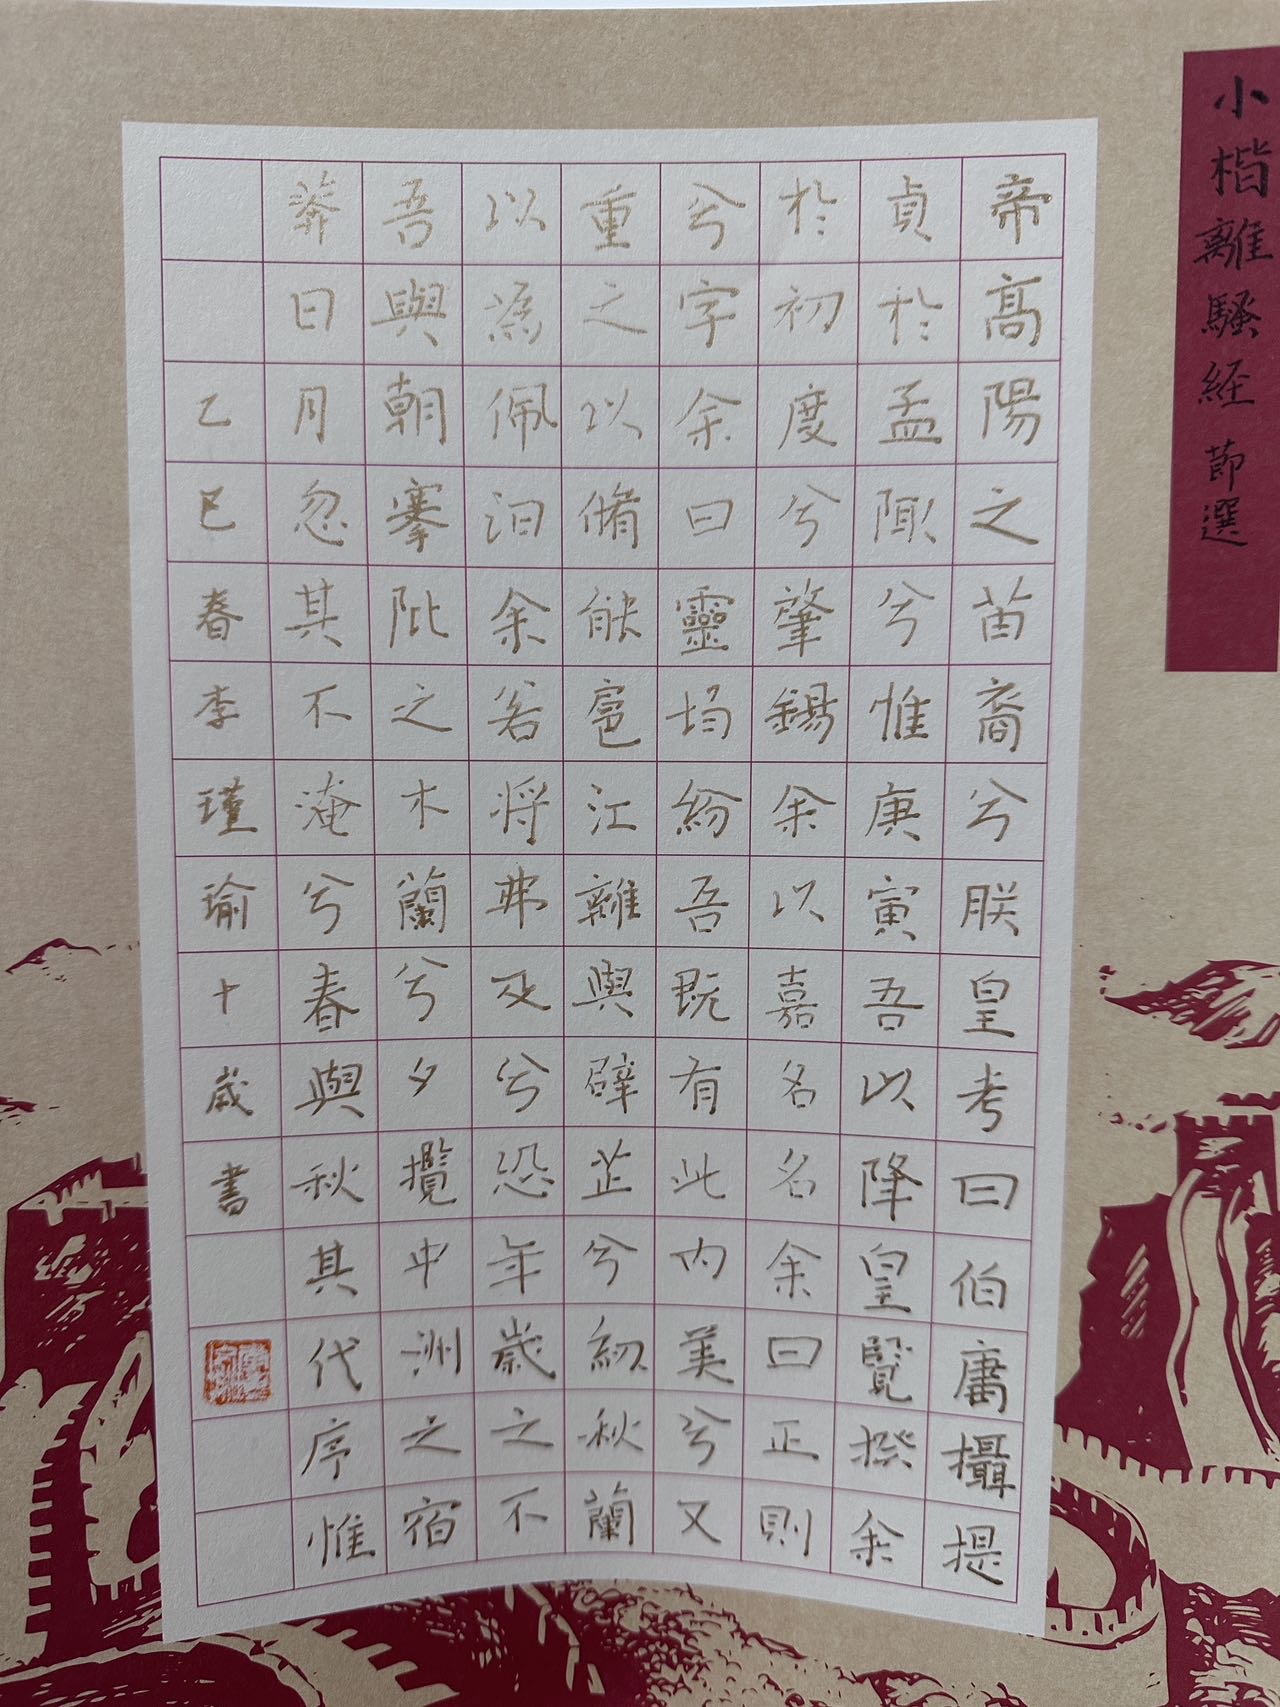 小楷離騷経 節選
帝髙陽之苗裔兮朕皇考曰伯庸攝提
貞於孟陬兮惟庚寅吾以降皇覽揆余
於初度兮肇錫余以嘉名名余曰正則
兮字余曰靈均紛吾既有此内美兮又
重之以脩能扈江離與辟芷兮紉秋蘭
以為佩汩余若将弗及兮恐年歲之不
吾與朝搴阰之木蘭兮夕攬中洲之宿
莽日月忽其不淹兮春與秋其代序惟
乙巳春李瑾瑜十歲書